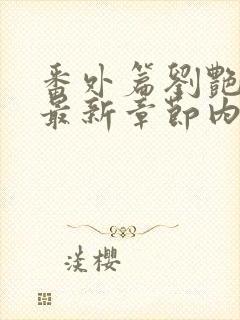 番外篇劉艷
最新章節內
淡櫻